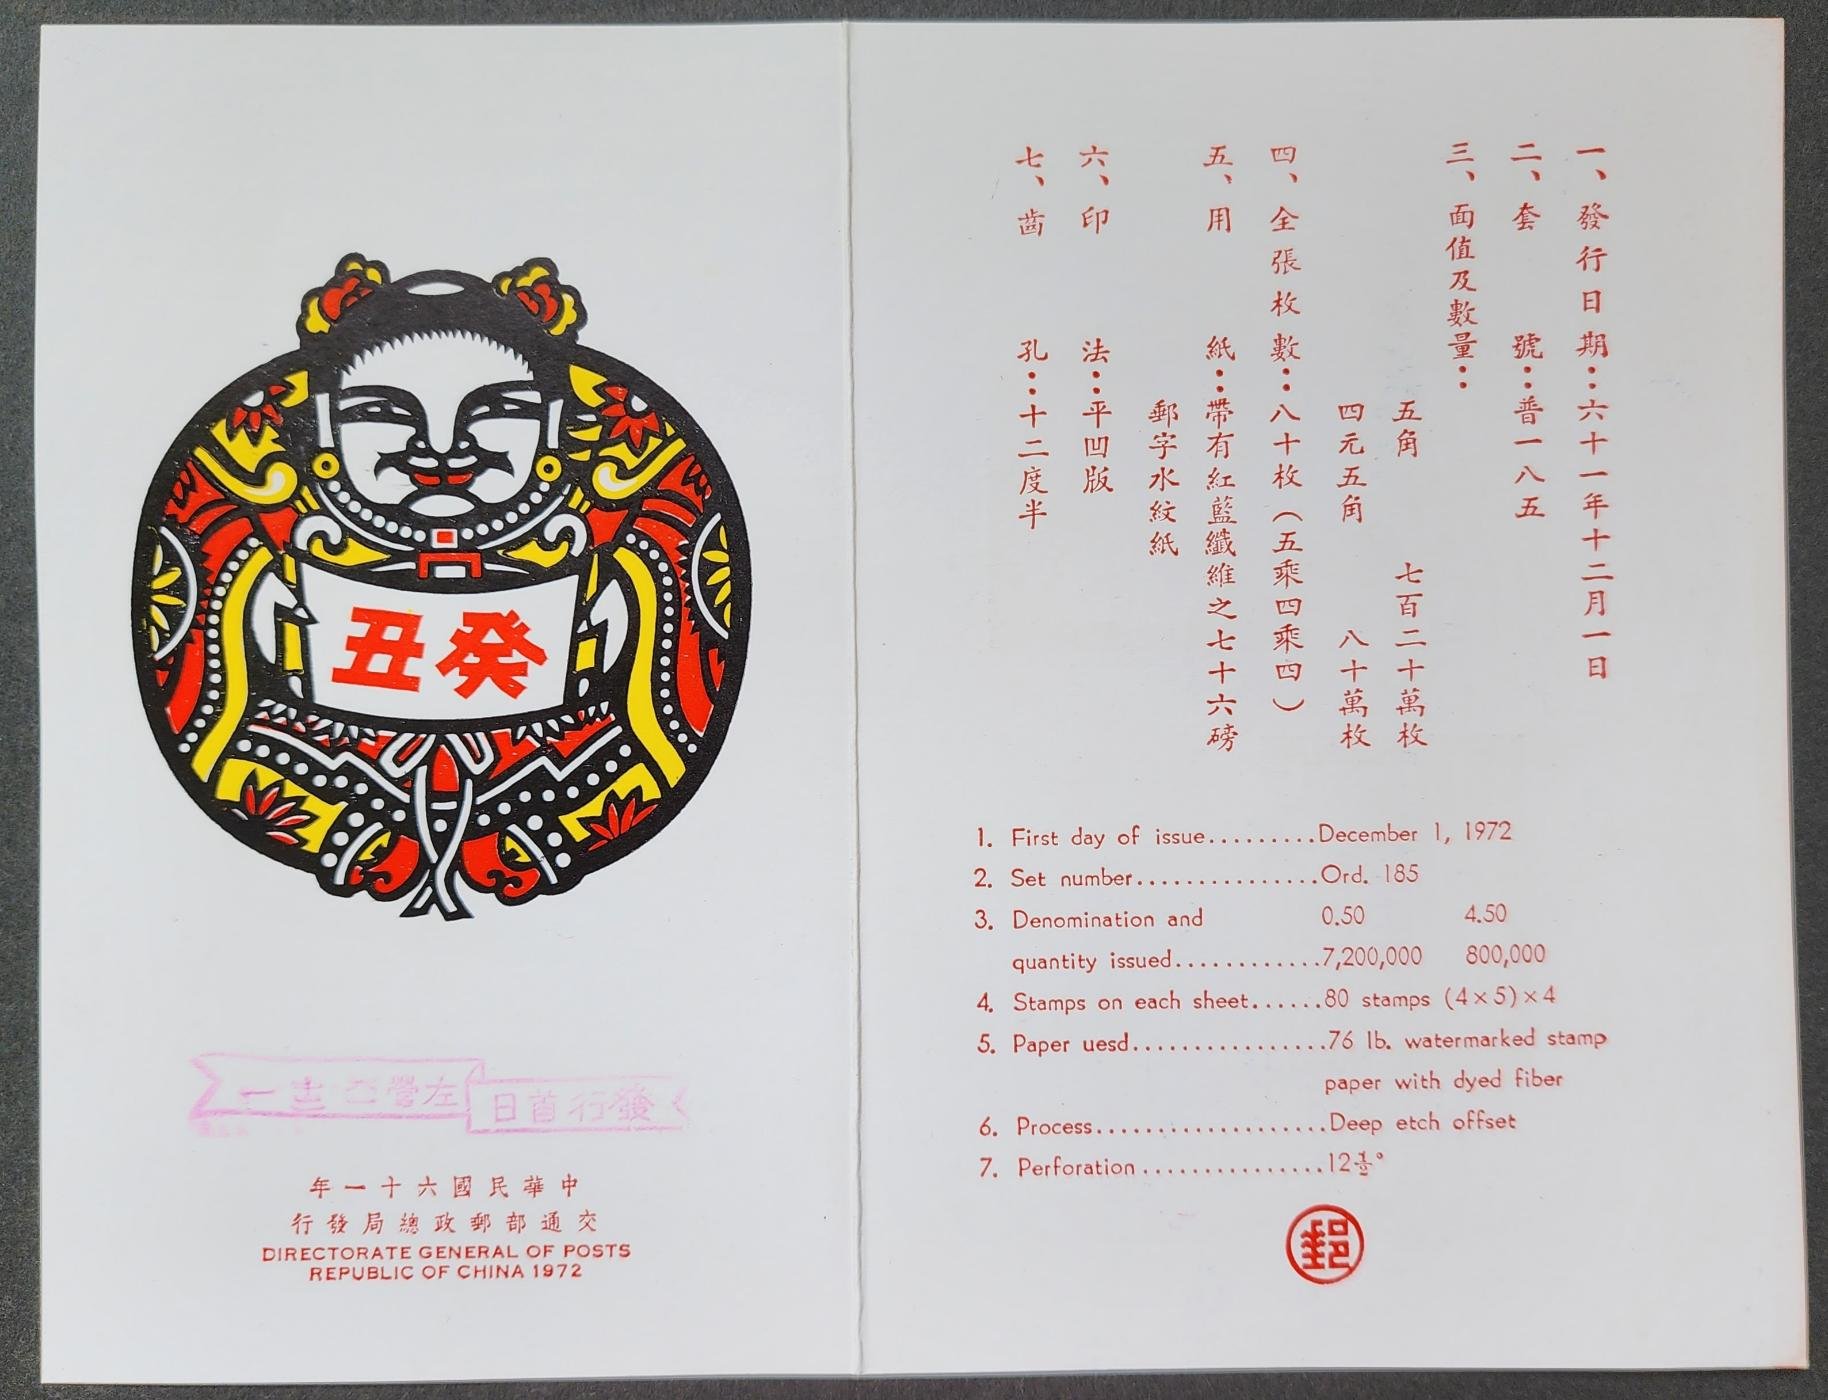 癸丑
發行首日
中華民國六十一年
交通部郵政總局發行
DIRECTORATE GENERAL OF POSTS
REPUBLIC OF CHINA 1972
一、發行日期：六十一年十二月一日
二、套號：普一八五
三、面值及數量：
五角 七百二十萬枚
四元五角 八十萬枚
四、全張枚數：八十枚（五乘四乘四）
五、用紙：帶有紅藍纖維之七十六磅
郵字水紋紙
六、印法：平凹版
七、齒孔：十二度半
1. First day of issue.........December 1, 1972
2. Set number...............Ord. 185
3. Denomination and 0.50 4.50
quantity issued............7,200,000 800,000
4. Stamps on each sheet......80 stamps (4×5)×4
5. Paper uesd................76 lb. watermarked stamp
paper with dyed fiber
6. Process...................Deep etch offset
7. Perforation...............12½°
郵